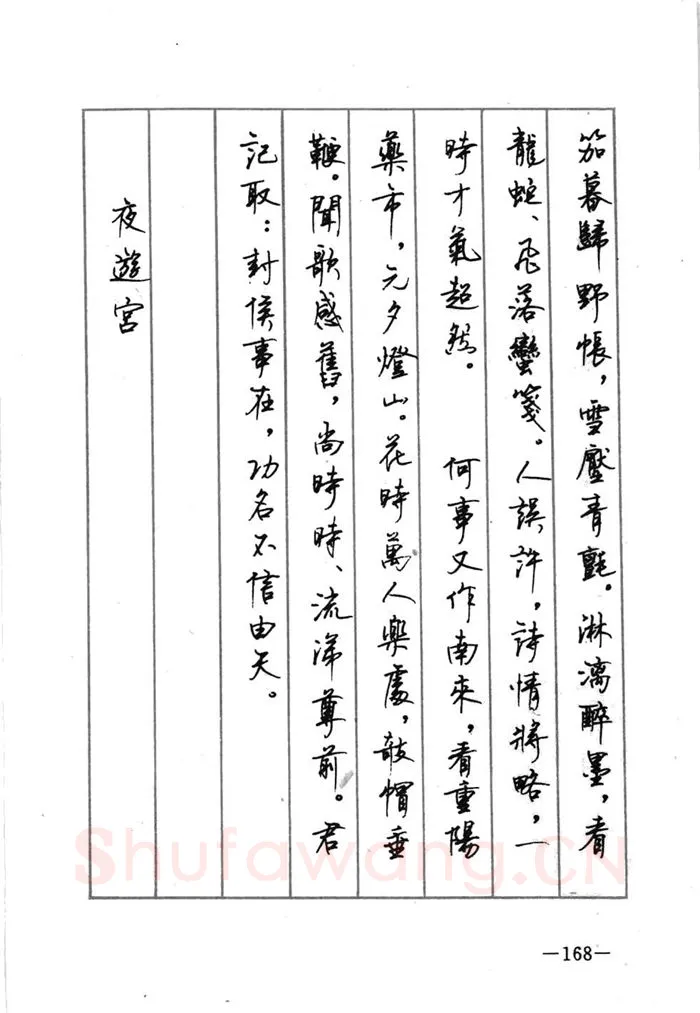 笳暮歸野帳，雪壓青氈。淋漓醉墨，看
龍蛇、飛落蠻箋。人誤許，詩情將略，一
時才氣超然。　何事又作南來，看重陽
藥市，元夕燈山。花時萬人樂處，攲帽垂
鞭。聞歌感舊，尚時時、流涕尊前。君
記取：封侯事在，功名不信由天。
夜遊宮
Shufawang.CN
—168—